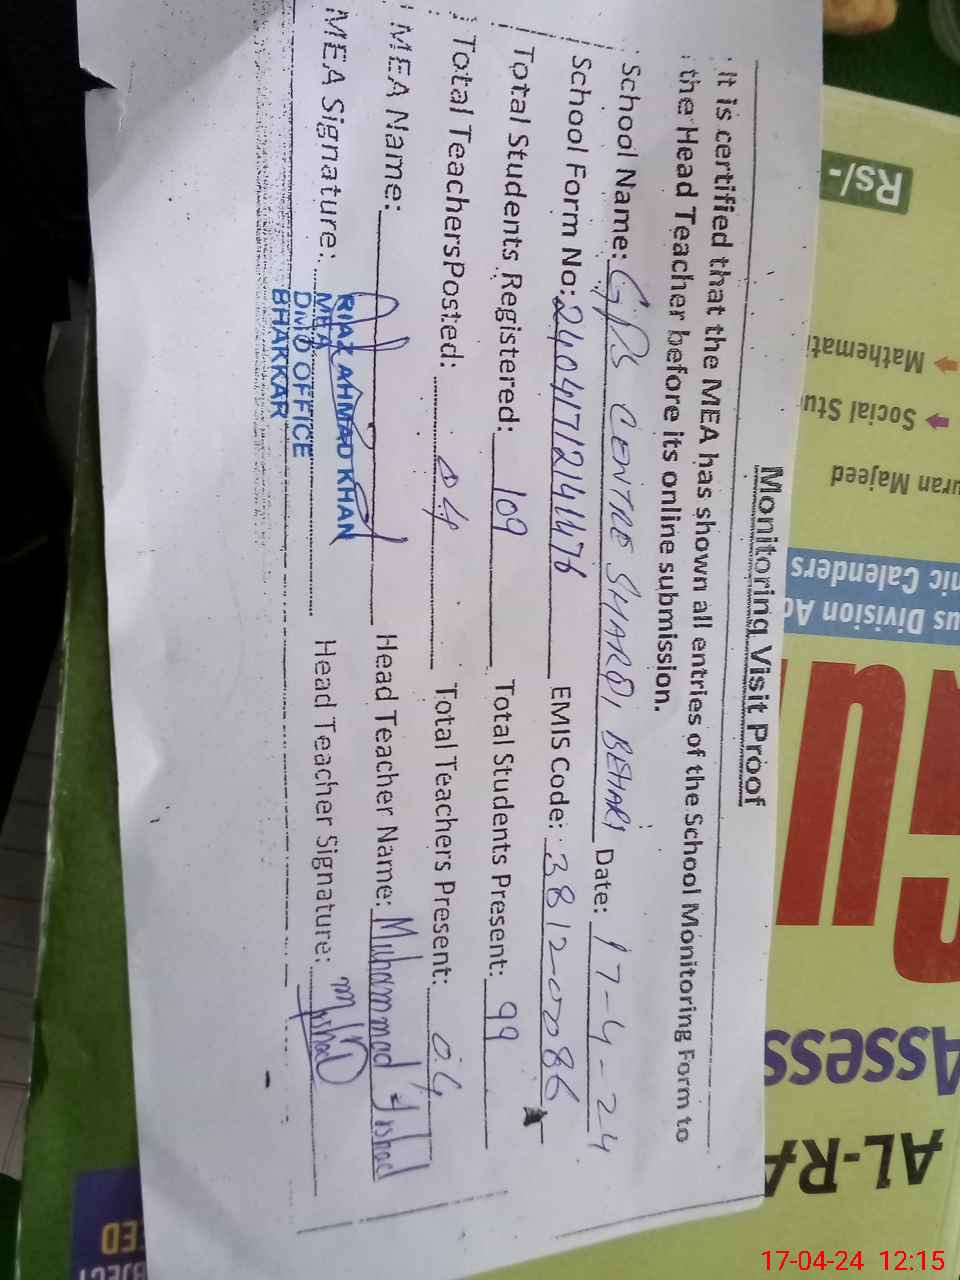 Monitoring Visit Proof
It is certified that the MEA has shown all entries of the School Monitoring Form to
the Head Teacher before its online submission.
School Name: GPS CENTRE SHARQI BEHARI Date: 17-4-24
School Form No: EMIS Code: 38120086
Total Students Registered: 109 Total Students Present: 99
Total TeachersPosted: 04 Total Teachers Present: 04
MEA Name: Head Teacher Name: Muhammad Irshad
MEA Signature: Head Teacher Signature: Irshad
RIAZ AHMAD KHAN
MEA
DMO OFFICE
BHAKKAR
Rs/-
Mathemati
Social Stu
uran Majeed
nic Calenders
us Division Ac
Assess
AL-RA
17-04-24 12:15